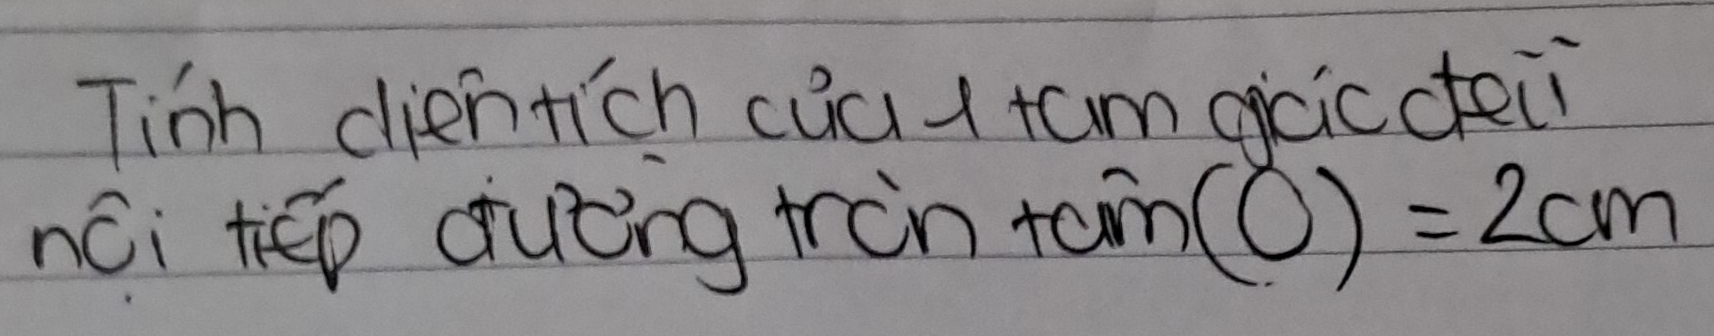 Tính diện tích của 1 tam giác đều
nội tiếp đường tròn tâm (O) = 2cm